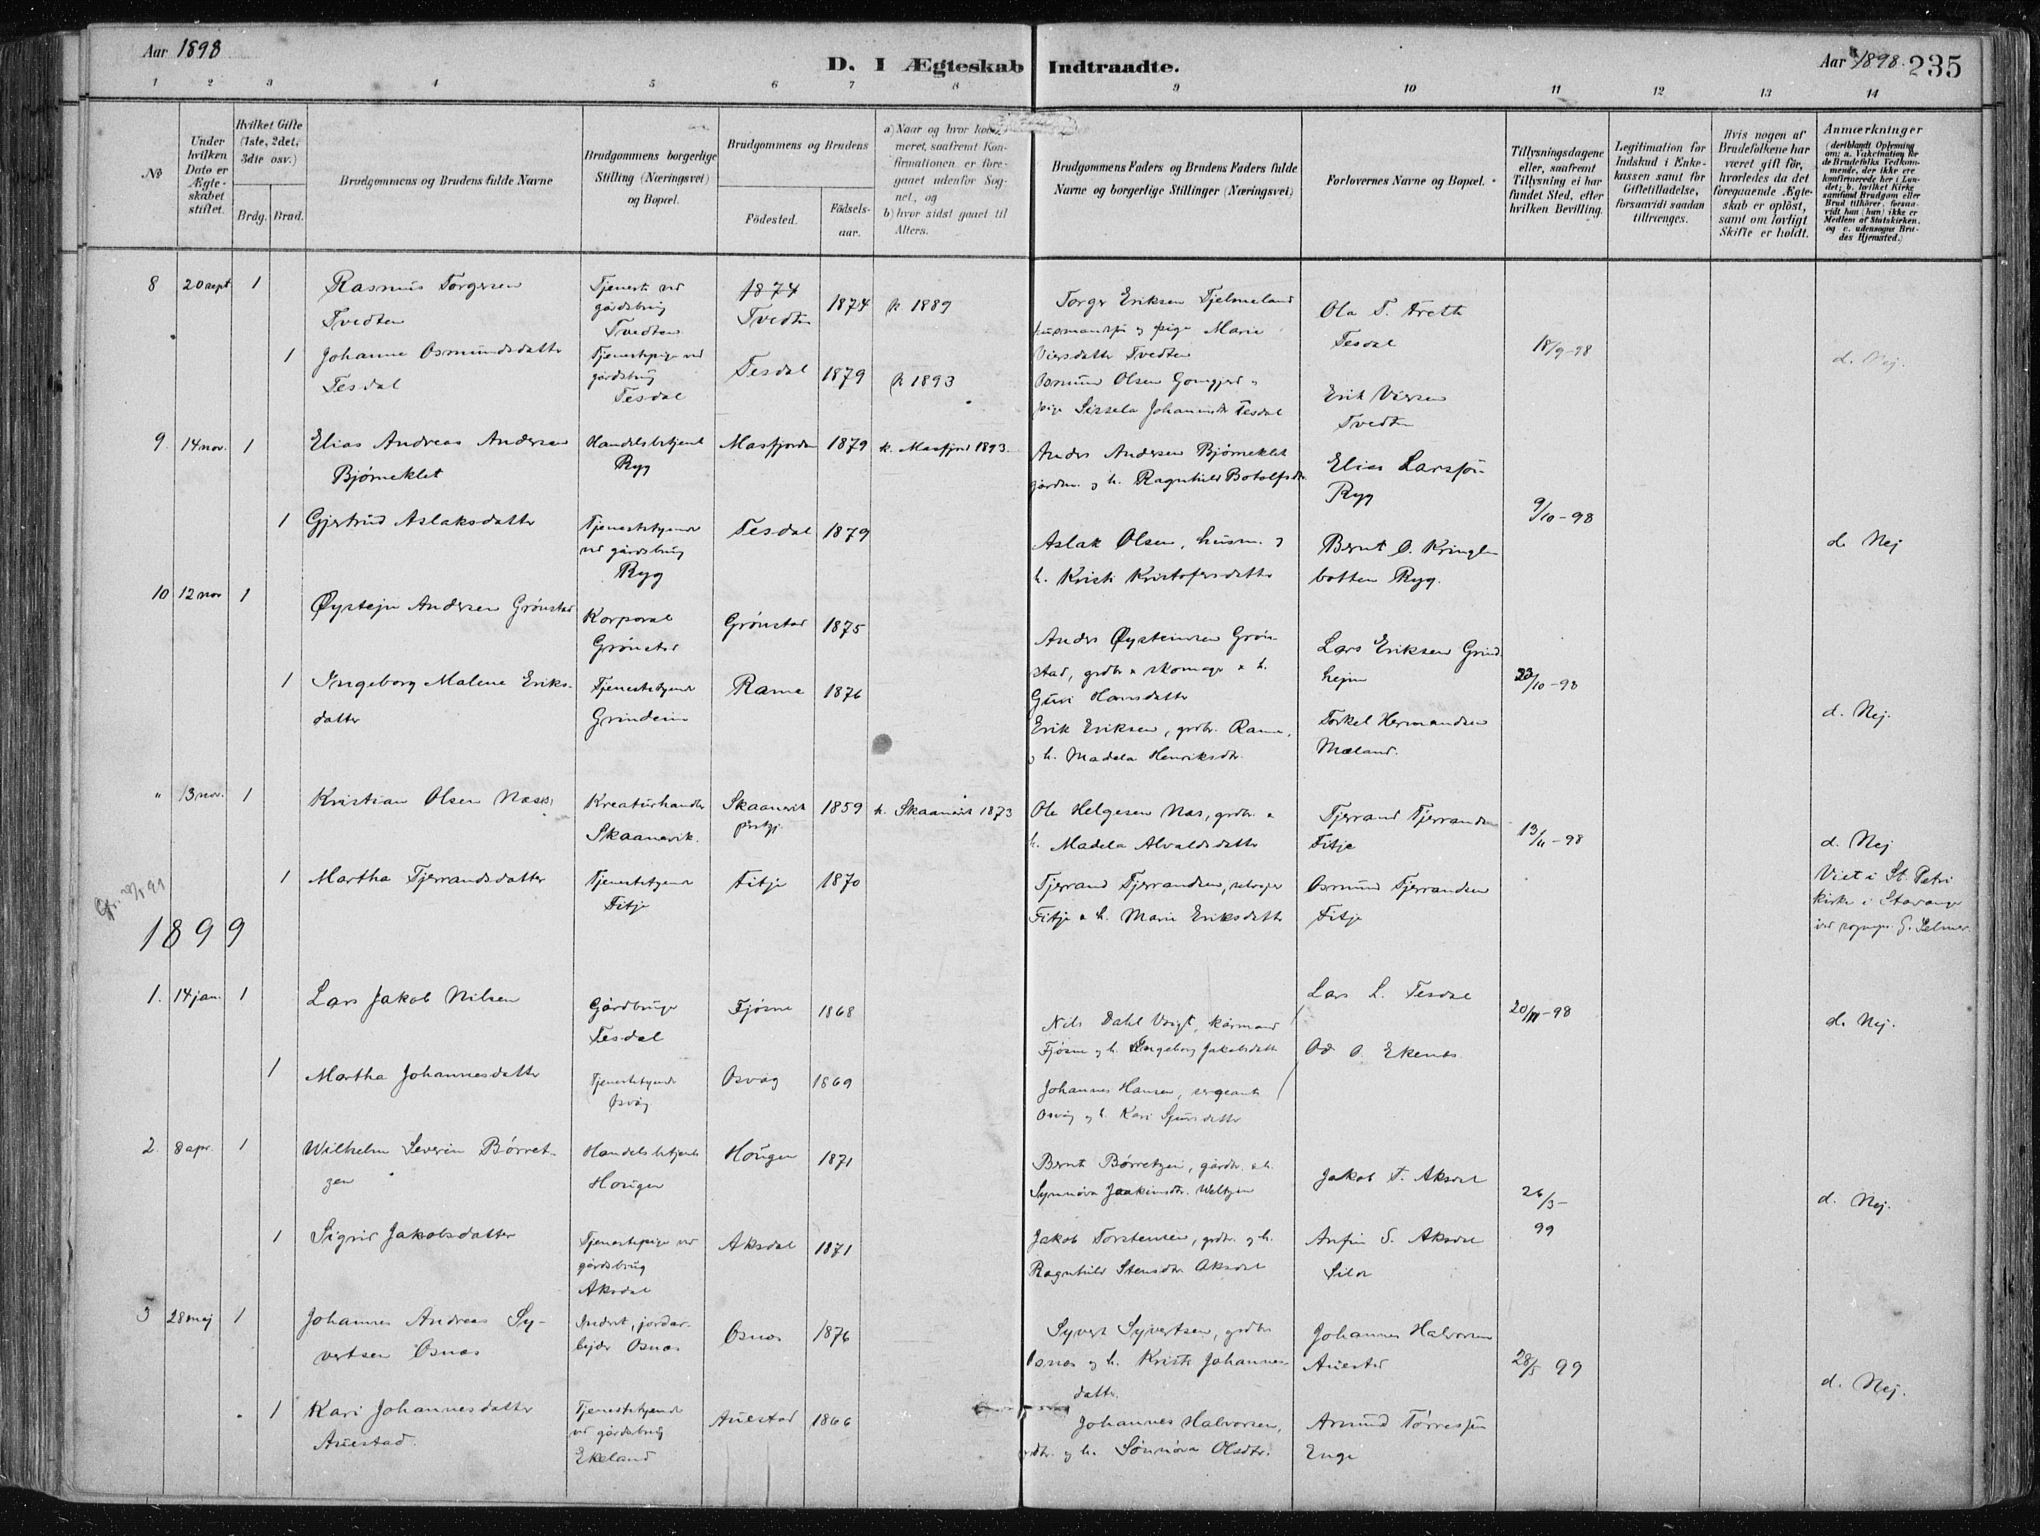 Aar 1898
D. I Ægteskab Indtraadte.
Aar 1898. 235
1 2 3 4 5 6 7 8 9 10 11 12 13 14
No
Under hvilken Dato er Ægteskabet stiftet.
Hvilket Gifte (1ste, 2det, 3die osv.)
Brdg. Brud.
Brudgommens og Brudens fulde Navne
Brudgommens borgerlige Stilling (Næringsvei) og Bopæl.
Brudgommens og Brudens
Fødested.
Fødselsaar.
a) Naar og hvor konfirmeret, saafremt Konfirmationen er foregaaet udenfor Sognet, og
b) hvor sidst gaaet til Alters.
Brudgommens Faders og Brudens Faders fulde Navne og borgerlige Stillinger (Næringsvei)
Forlovernes Navne og Bopæl.
Tillysningsdagene eller, saafremt Tillysning ei har fundet Sted, efter hvilken Bevilling.
Legitimation for Indskud i Enkekassen samt for Giftetilladelse, forsaavidt saadan tiltrænges.
Hvis nogen af Brudefolkene har været gift før, hvorledes da det foregaaende Ægteskab er opløst, samt om lovligt Skifte er holdt.
Anmærkninger
(deriblandt Oplysning om: a. Vakcination for de Brudefolks Vedkommende, der ikke ere konfirmerede her i Landet; b. hvilket Kirkesamfund Brudgom eller Brud tilhører, forsaavidt han (hun) ikke er Medlem af Statskirken, og c. udensogns Brudes Hjemsted.)
8 20 sept 1 Rasmus Torgersen
Tvedten
Tjener ved
gårdsbrug
Tvedten
1874
Tvedten 1874 k 1889
Torger Eriksen Tjelmeland
husmands og pige Marie
Viersdatter Tvedten
Ola T. Areth
Tesdal
18/9-98
1 Johanne Osmundsdatter
Tesdal
Tjenestepige ved
gårdsbrug
Tesdal
Tesdal 1879 k 1893
Osmund Olsen
pige Sissela Tesdal
Erik Viersen
Tvedten
d. Nej.
9. 14 nov. 1 Elias Andreas Andersen
Bjørneklet
Handelsbetjent
Ryg
Masfjorden 1879 k. Masfjord 1893.
Anders Andersen Bjørneklet
gårdm. og h. Ragnhild Botolfsdtr
Elias Larsson
Ryg
9/10-98
1 Gjertrud Aslaksdatter
Tjenestetyende
ved gårdsbrug
Ryg
Tesdal 1879
Aslak Olsen, husm. og
h. Kristi Kristofersdatter
Bernt O. Kringle
botten Ryg.
d. Nej
10 12 nov 1 Øystejn Andersen Grønstad
Korporal
Grønstad
Grønstad 1875
Anders Øysteinsen Grøn
stad, grdbr & skomager & h.
Guri Hansdatter
Lars Eriksen Grind
hejm
23/10-98
1 Ingeborg Malene Eriks-
datter
Tjenestetyende
Grindeim
Rame 1876
Erik Eriksen, grdbr. Rame,
og h. Madela Henriksdtr.
Torkel Hermandsen
Mæland.
d. Nej.
" 13 nov. 1 Kristian Olsen Næss
Kreaturhandler
Skaanevik.
Skaanevik
prstgj. 1859 k. Skaanevik 1873
Ole Helgesen Næs, grdbr. &
h. Madela Alvaldsdatter
Tjerrand Tjerrandsen
Fitje
13/11-98
d. Nej
1 Martha Tjerrandsdatter
Tjenestetyende
Fitje
Fitje 1870
Tjerrand Tjerrandsen, selveger
Fitje & h. Marie Eriksdatter
Osmund Tjerrandsen
Fitje
Viet i St. Petri
kirke i Stavanger
ved sognepr. G. Selmer.
1899
1. 14 jan. 1 Lars Jakob Nilsen
Gårdbruger
Tesdal
Fjøsne 1868
Nils Dahl Voigt, kårmand
Fjøsne og h. Ingeborg Jakobsdatt
Lars L. Tesdal
20/11-98
d. Nej.
1 Martha Johannesdatter
Tjenestetyende
Osvåg
Osvåg 1869
Johannes Hansen, sergeant
Osvåg og h. Kari Sjursdatter
Od O. Ekenes
2. 8 apr. 1 Wilhelm Severin Børret-
zen
Handelsbetjent
Hougen
Hougen 1871
Bernt Børretzen, gårdbr. & h.
Synnøva Joakimsdtr. Weltzen
Jakob T. Aksdal
26/3-
99
d. Nej.
1 Sigrid Jakobsdatter
Tjenestepige ved
gårdsbrug
Aksdal
Aksdal 1871
Jakob Torstensen, grdbr. og h.
Ragnhild Stensdtr. Aksdal
Anfin S. Aksdal
Silde
3 28 maj 1 Johannes Andreas Sy-
vertsen Osnes
jordar-
bejder Osnes
Osnes 1876
Syvert Syvertsen, grdbr
Osnes og h. Kristi Johannes-
datter.
Johannes Halvorsen
Auestad
28/5 99
d. Nej.
1 Kari Johannesdatter
Auestad.
Tjenestetyende
ved gårdsbrug
Ekeland
Auestad 1866
Johannes Halvorsen,
grdbr. og h. Sønnøva Olsdtr.
Amund Tørressen
Enge